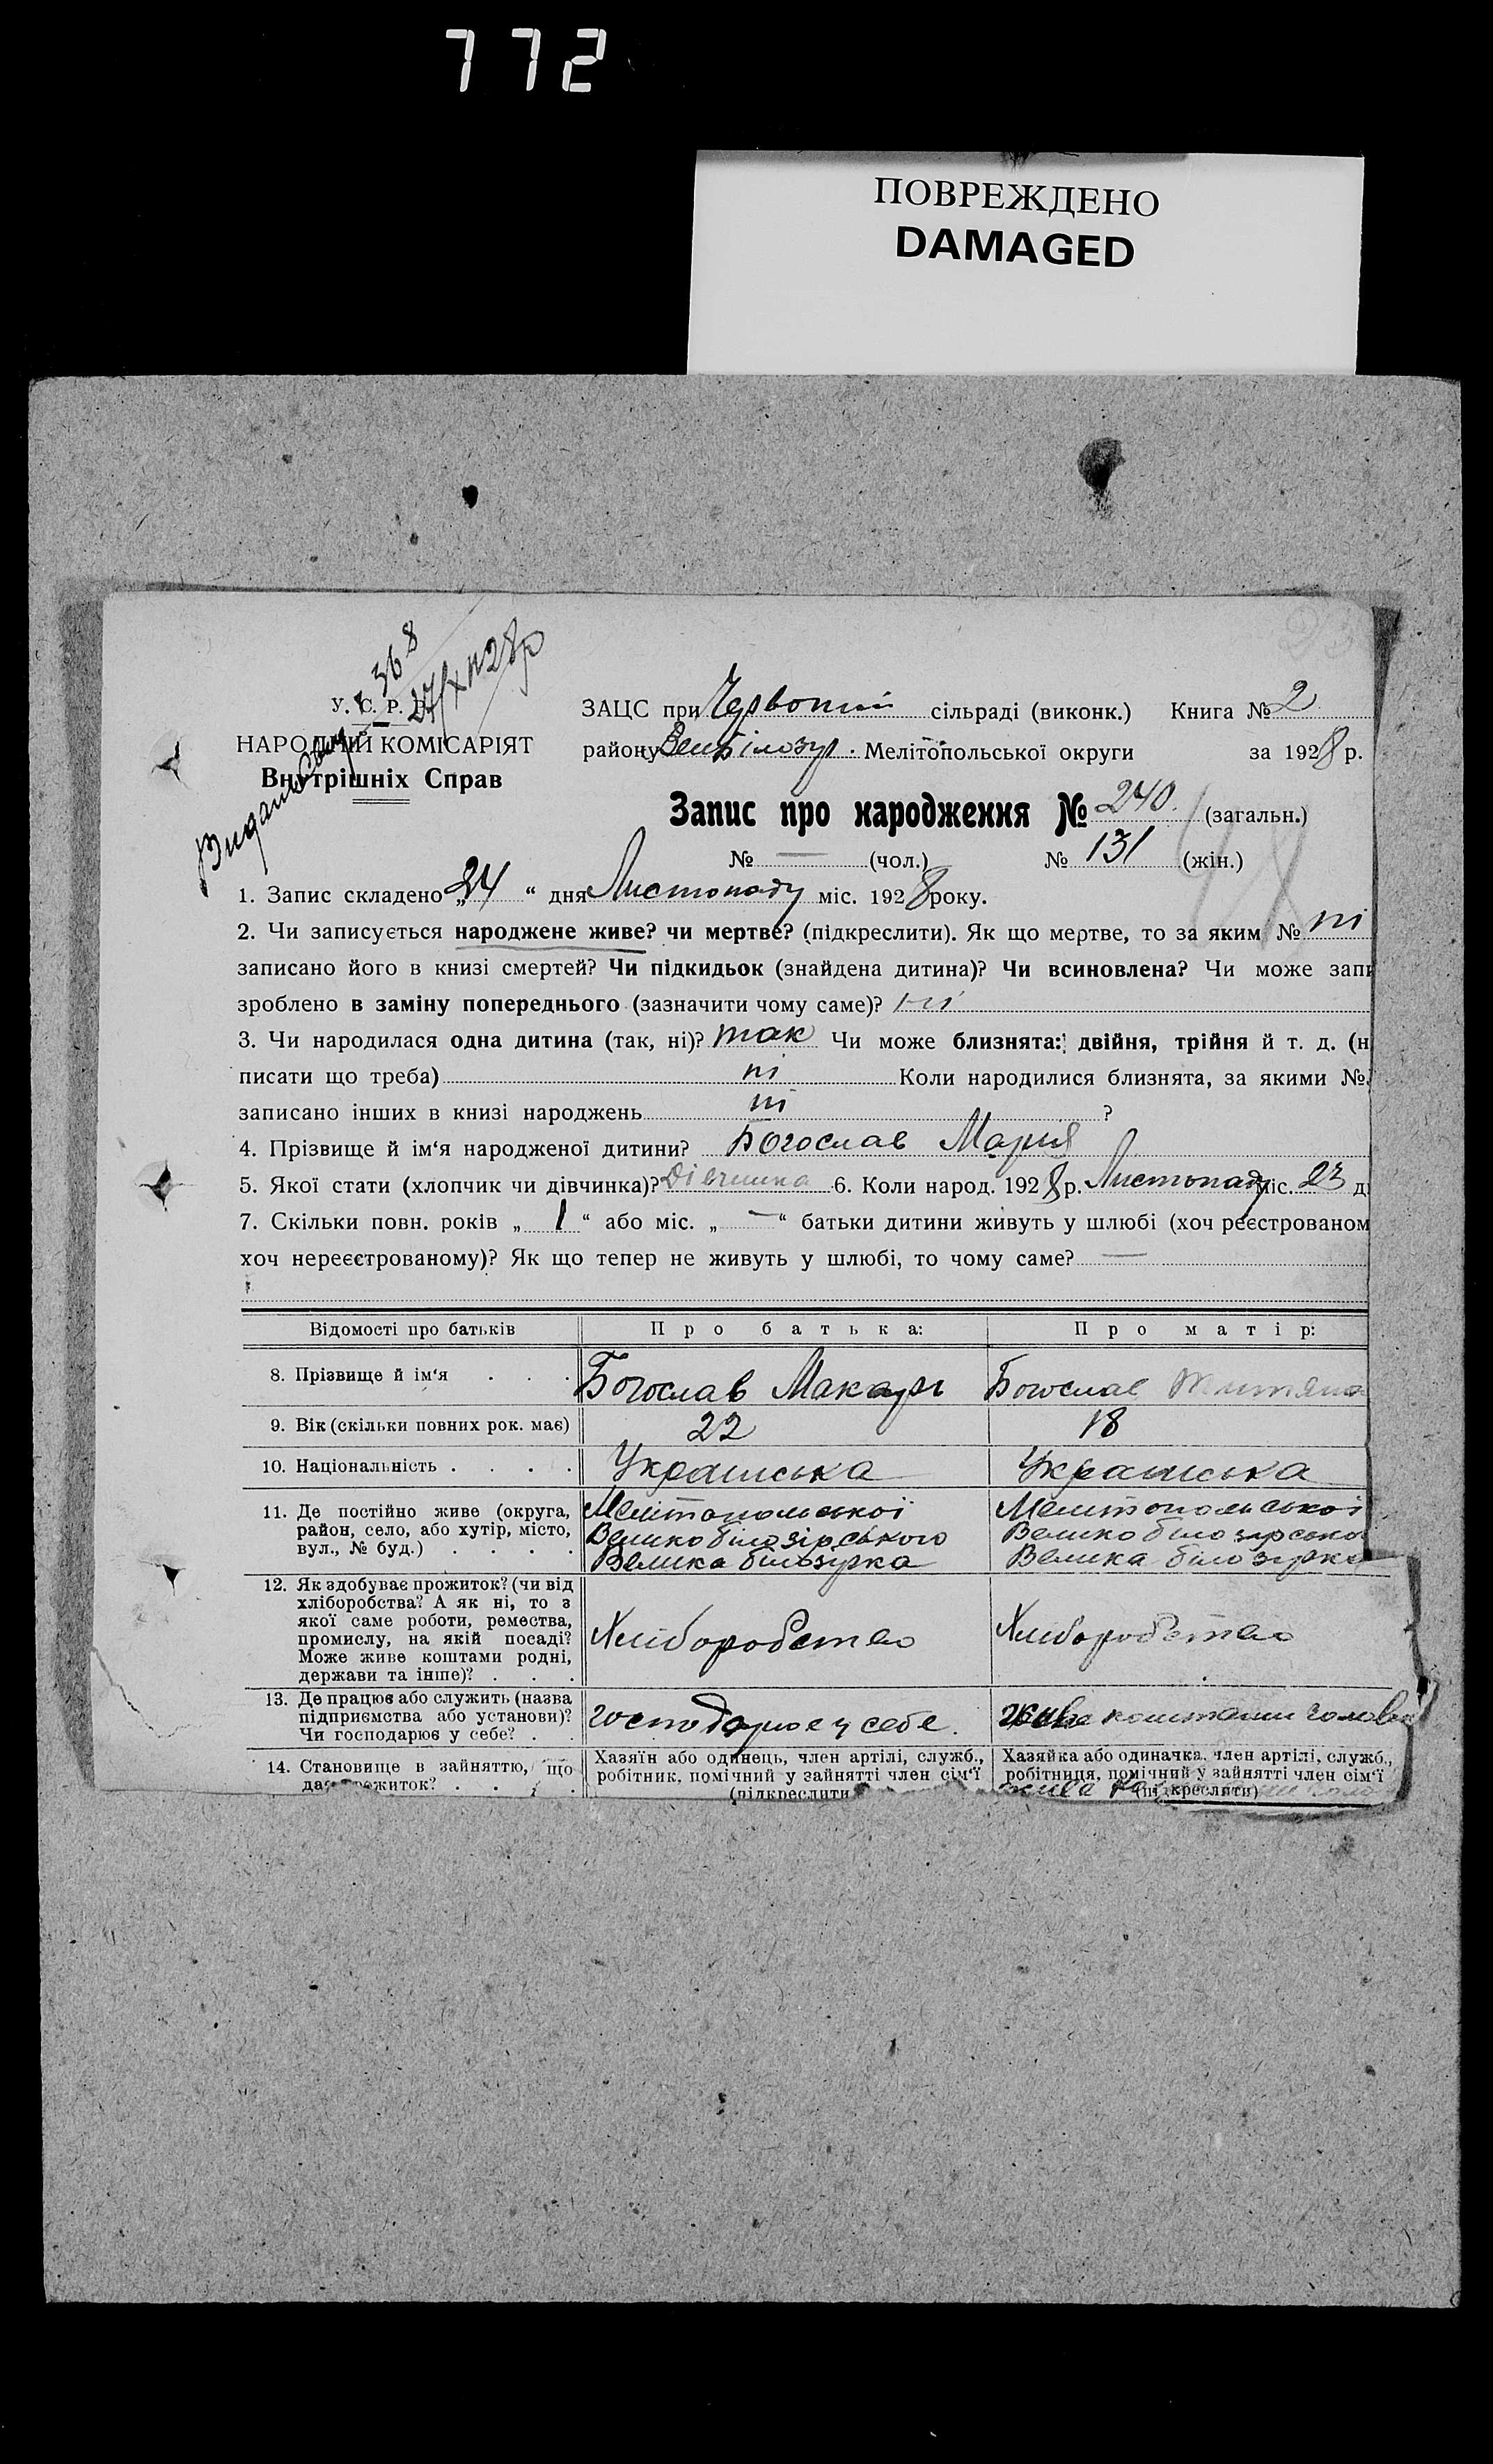 772
ПОВРЕЖДЕНО
DAMAGED
368
27/XII 28р
У. С. Р. Р.
НАРОДНИЙ КОМІСАРІЯТ
Внутрішніх Справ
ЗАЦС при Червоний сільраді (виконк.) Книга № 2
району Вел Білозур. Мелітопольської округи за 1928 р.
Запис про народження № 240 (загальн.)
№ — (чол.) № 131 (жін.)
1. Запис складено „24“ дня Листопаду міс. 1928 року.
2. Чи записується народжене живе? чи мертве? (підкреслити). Як що мертве, то за яким № ні
записано його в книзі смертей? Чи підкидьок (знайдена дитина)? Чи всиновлена? Чи може запи
зроблено в заміну попереднього (зазначити чому саме)? ні
3. Чи народилася одна дитина (так, ні)? так Чи може близнята: двійня, трійня й т. д. (н
писати що треба) ні Коли народилися близнята, за якими №
записано інших в книзі народжень ні ?
4. Прізвище й ім‘я народженої дитини? Богослав Марія
5. Якої стати (хлопчик чи дівчинка)? Дівчинка 6. Коли народ. 1928 р. Листопаду міс. 23 д
7. Скільки повн. років „1“ або міс. „—“ батьки дитини живуть у шлюбі (хоч реєстрованом
хоч нереєстрованому)? Як що тепер не живуть у шлюбі, то чому саме? —
Відомості про батьків Про батька: Про матір:
8. Прізвище й ім‘я . . . Богослав Макарь Богослав Титяна
9. Вік (скільки повних рок. має) 22 18
10. Національність . . . . Українська Українська
11. Де постійно живе (округа,
район, село, або хутір, місто,
вул., № буд.) . . . .
Мелітопольської
Великобілозірського
Велика білозурка
Мелітопольської
Великобілозірсько
Велика білозурка
12. Як здобуває прожиток? (чи від
хліборобства? А як ні, то з
якої саме роботи, ремества,
промислу, на якій посаді?
Може живе коштами родні,
держави та інше)? . . .
Хліборобство
Хліборобство
13. Де працює або служить (назва
підприємства або установи)?
Чи господарює у себе? . .
господарює у себе.
живе коштами чолов
14. Становище в зайняттю, що
дає прожиток? . . . .
Хазяїн або одинець, член артілі, служб.,
робітник, помічний у зайнятті член сім‘ї
(підкреслити
Хазяйка або одиначка, член артілі, служб.,
робітниця, помічний у зайнятті член сім‘ї
(підкреслити)